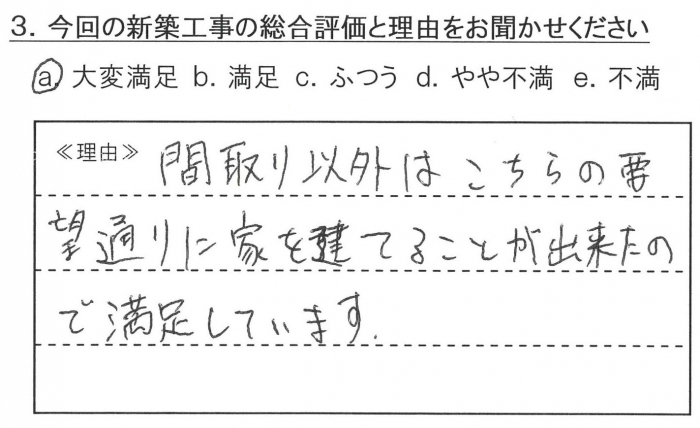 3. 今回の新築工事の総合評価と理由をお聞かせください
a. 大変満足 b. 満足 c. ふつう d. やや不満 e. 不満
≪理由≫ 間取り以外はこちらの要
望通りに家を建てることが出来たの
で満足しています.